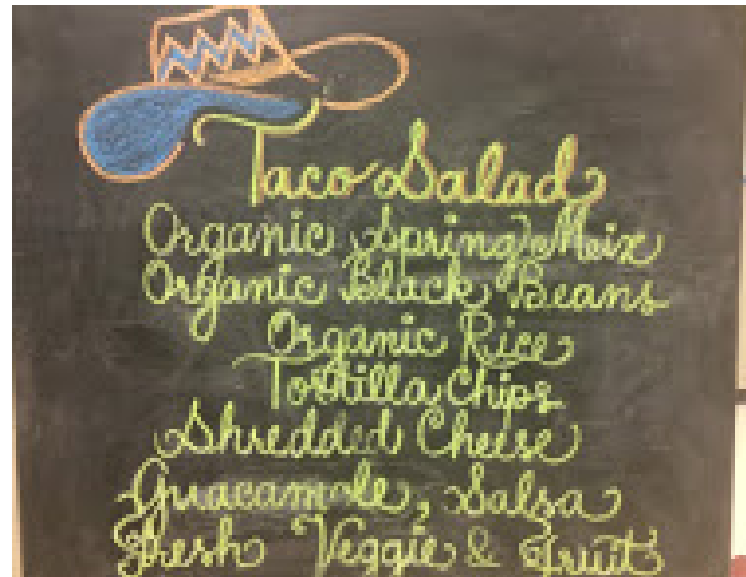 Taco Salad
Organic Spring Mix
Organic Black Beans
Organic Rice
Tortilla Chips
Shredded Cheese
Guacamole, Salsa
Fresh Veggie & Fruit